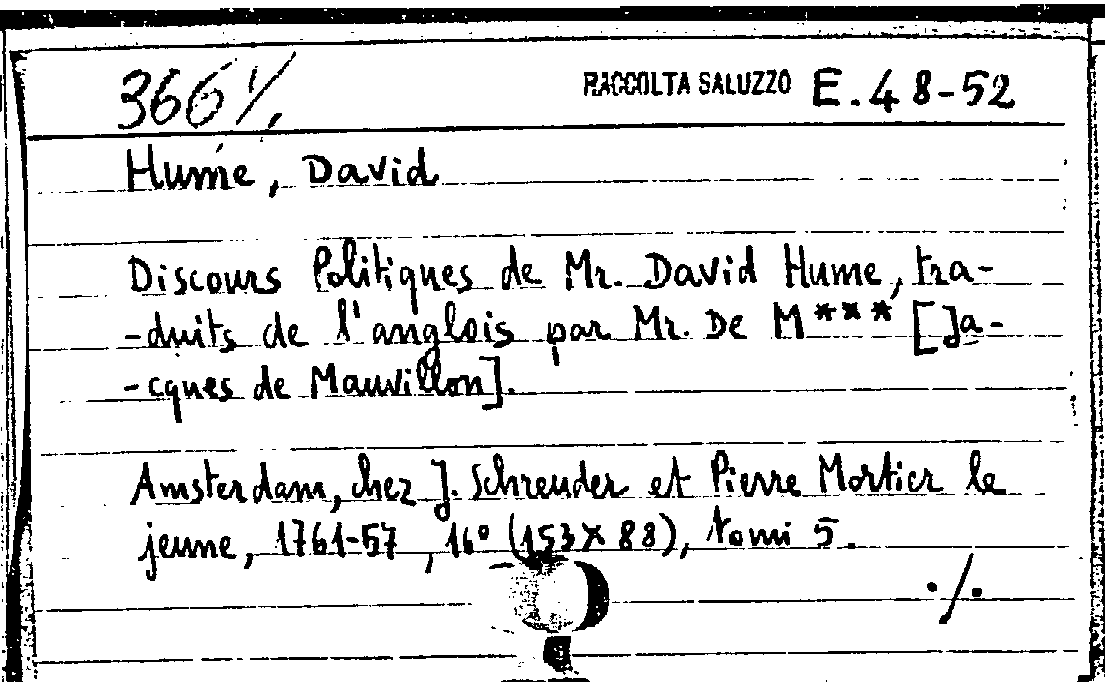 366 ./. RACCOLTA SALUZZO E.48-52
Hume, David
Discours Politiques de Mr. David Hume, tra-
-duits de l'anglois par Mr. De M*** [Ja-
-cques de Mauvillon].
Amsterdam, chez J. Schreuder et Pierre Mortier le
jeune, 1761-57, 16° (153X88), tomi 5.
./.